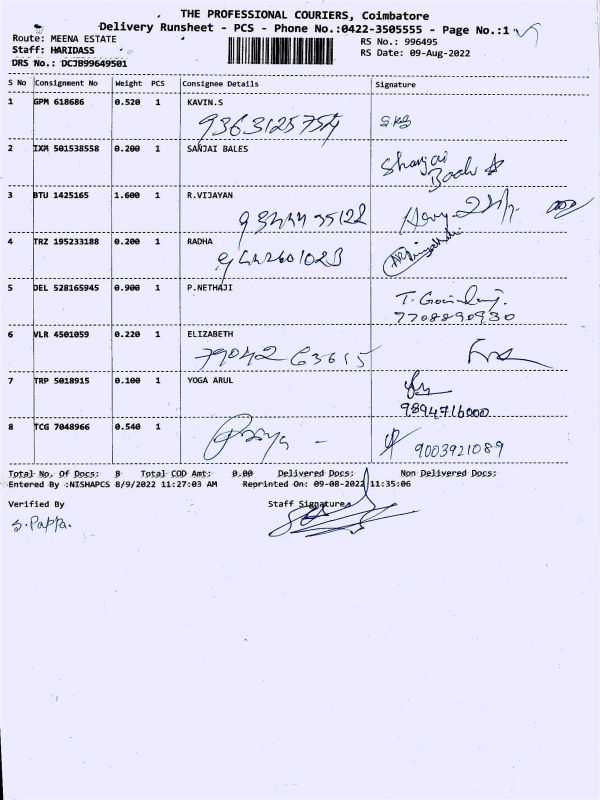 THE PROFESSIONAL COURIERS, Coimbatore
Delivery Runsheet - PCS - Phone No.:0422-3505555 - Page No.:1
Route: MEENA ESTATE
RS No.: 996495
Staff: HARIDASS
RS Date: 09-Aug-2022
DRS No.: DCJB99649501
S No Consignment No Weight PCS Consignee Details Signature
1 GPM 618686 0.520 1 KAVIN.S
9363125754
2 IXM 501538558 0.200 1 SANJAI BALES
3 BTU 1425165 1.600 1 R.VIJAYAN
4 TRZ 195233188 0.200 1 RADHA
5 DEL 528165945 0.900 1 P.NETHAJI
7708890930
6 VLR 4501059 0.220 1 ELIZABETH
79042 63615
7 TRP 5018915 0.100 1 YOGA ARUL
9894716000
8 TCG 7048966 0.540 1
Priya -
9003921089
Total No. Of Docs: 8 Total COD Amt: 0.00 Delivered Docs: Non Delivered Docs:
Entered By :NISHAPCS 8/9/2022 11:27:03 AM Reprinted On: 09-08-2022 11:35:06
Verified By Staff Signature
S.Pappa.